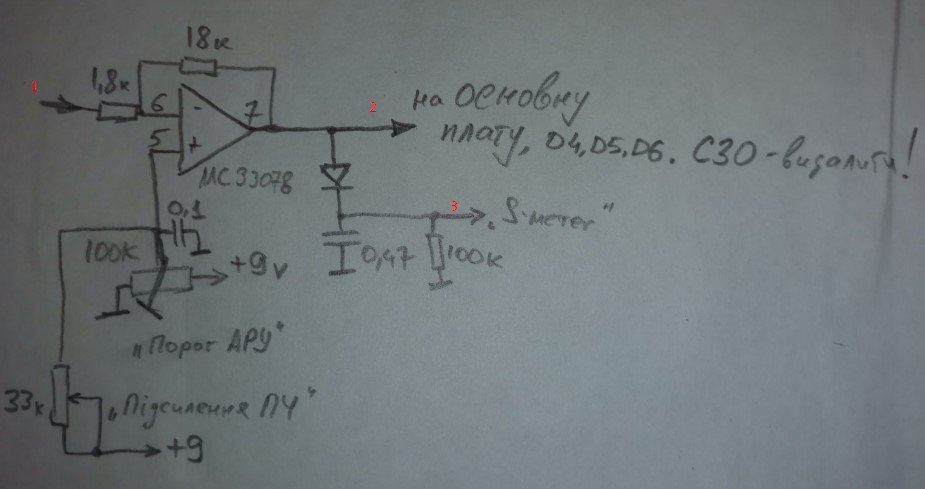 18к
1 1,8к 6 - 7 2 на основну
плату, D4, D5, D6. C30 - видалити!
5 +
MC33078
0,1 3 „S-метег"
100к +9v 0,47 100к
„Порог АРУ"
33к „Підсилення ПЧ"
+9